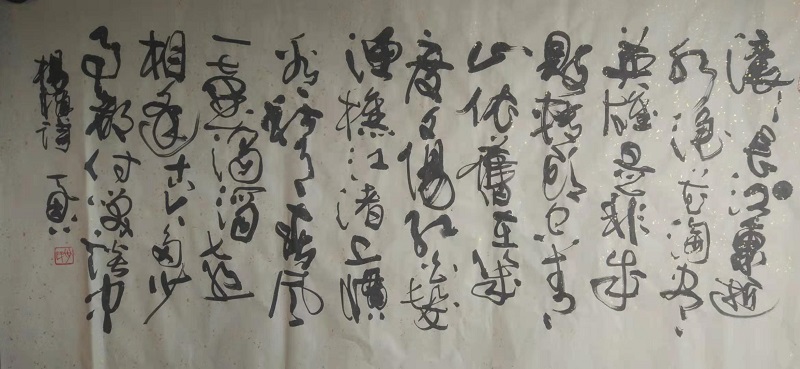 滾々長江東逝
水浪花淘盡
英雄是非成
敗轉頭空青
山依舊在幾
度夕陽紅白髮
漁樵江渚上慣
看秋月春風
一壺濁酒喜
相逢古今多少
事都付笑談中
楊慎詩